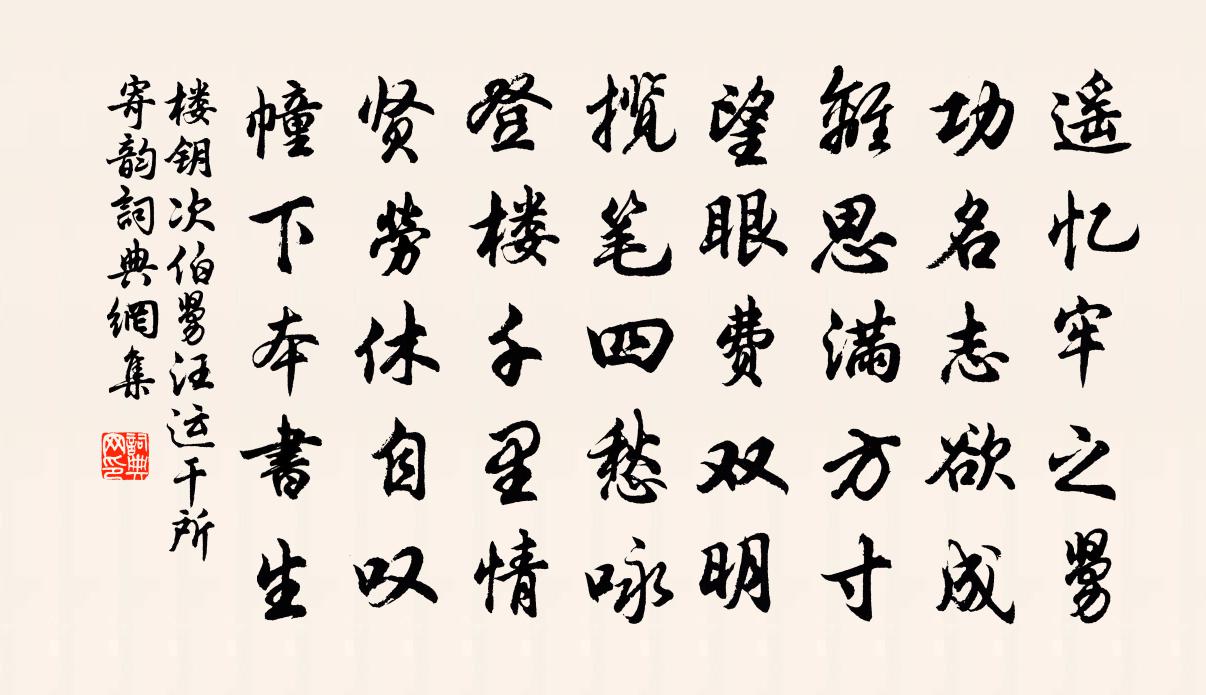 遥忆牢之舅
功名志欲成
離思满方寸
望眼费双明
揽笔四愁咏
登楼千里情
贤勞休自叹
幢下本書生
楼钥次伯舅汪运干所
寄韵詞典網集
詞典网印